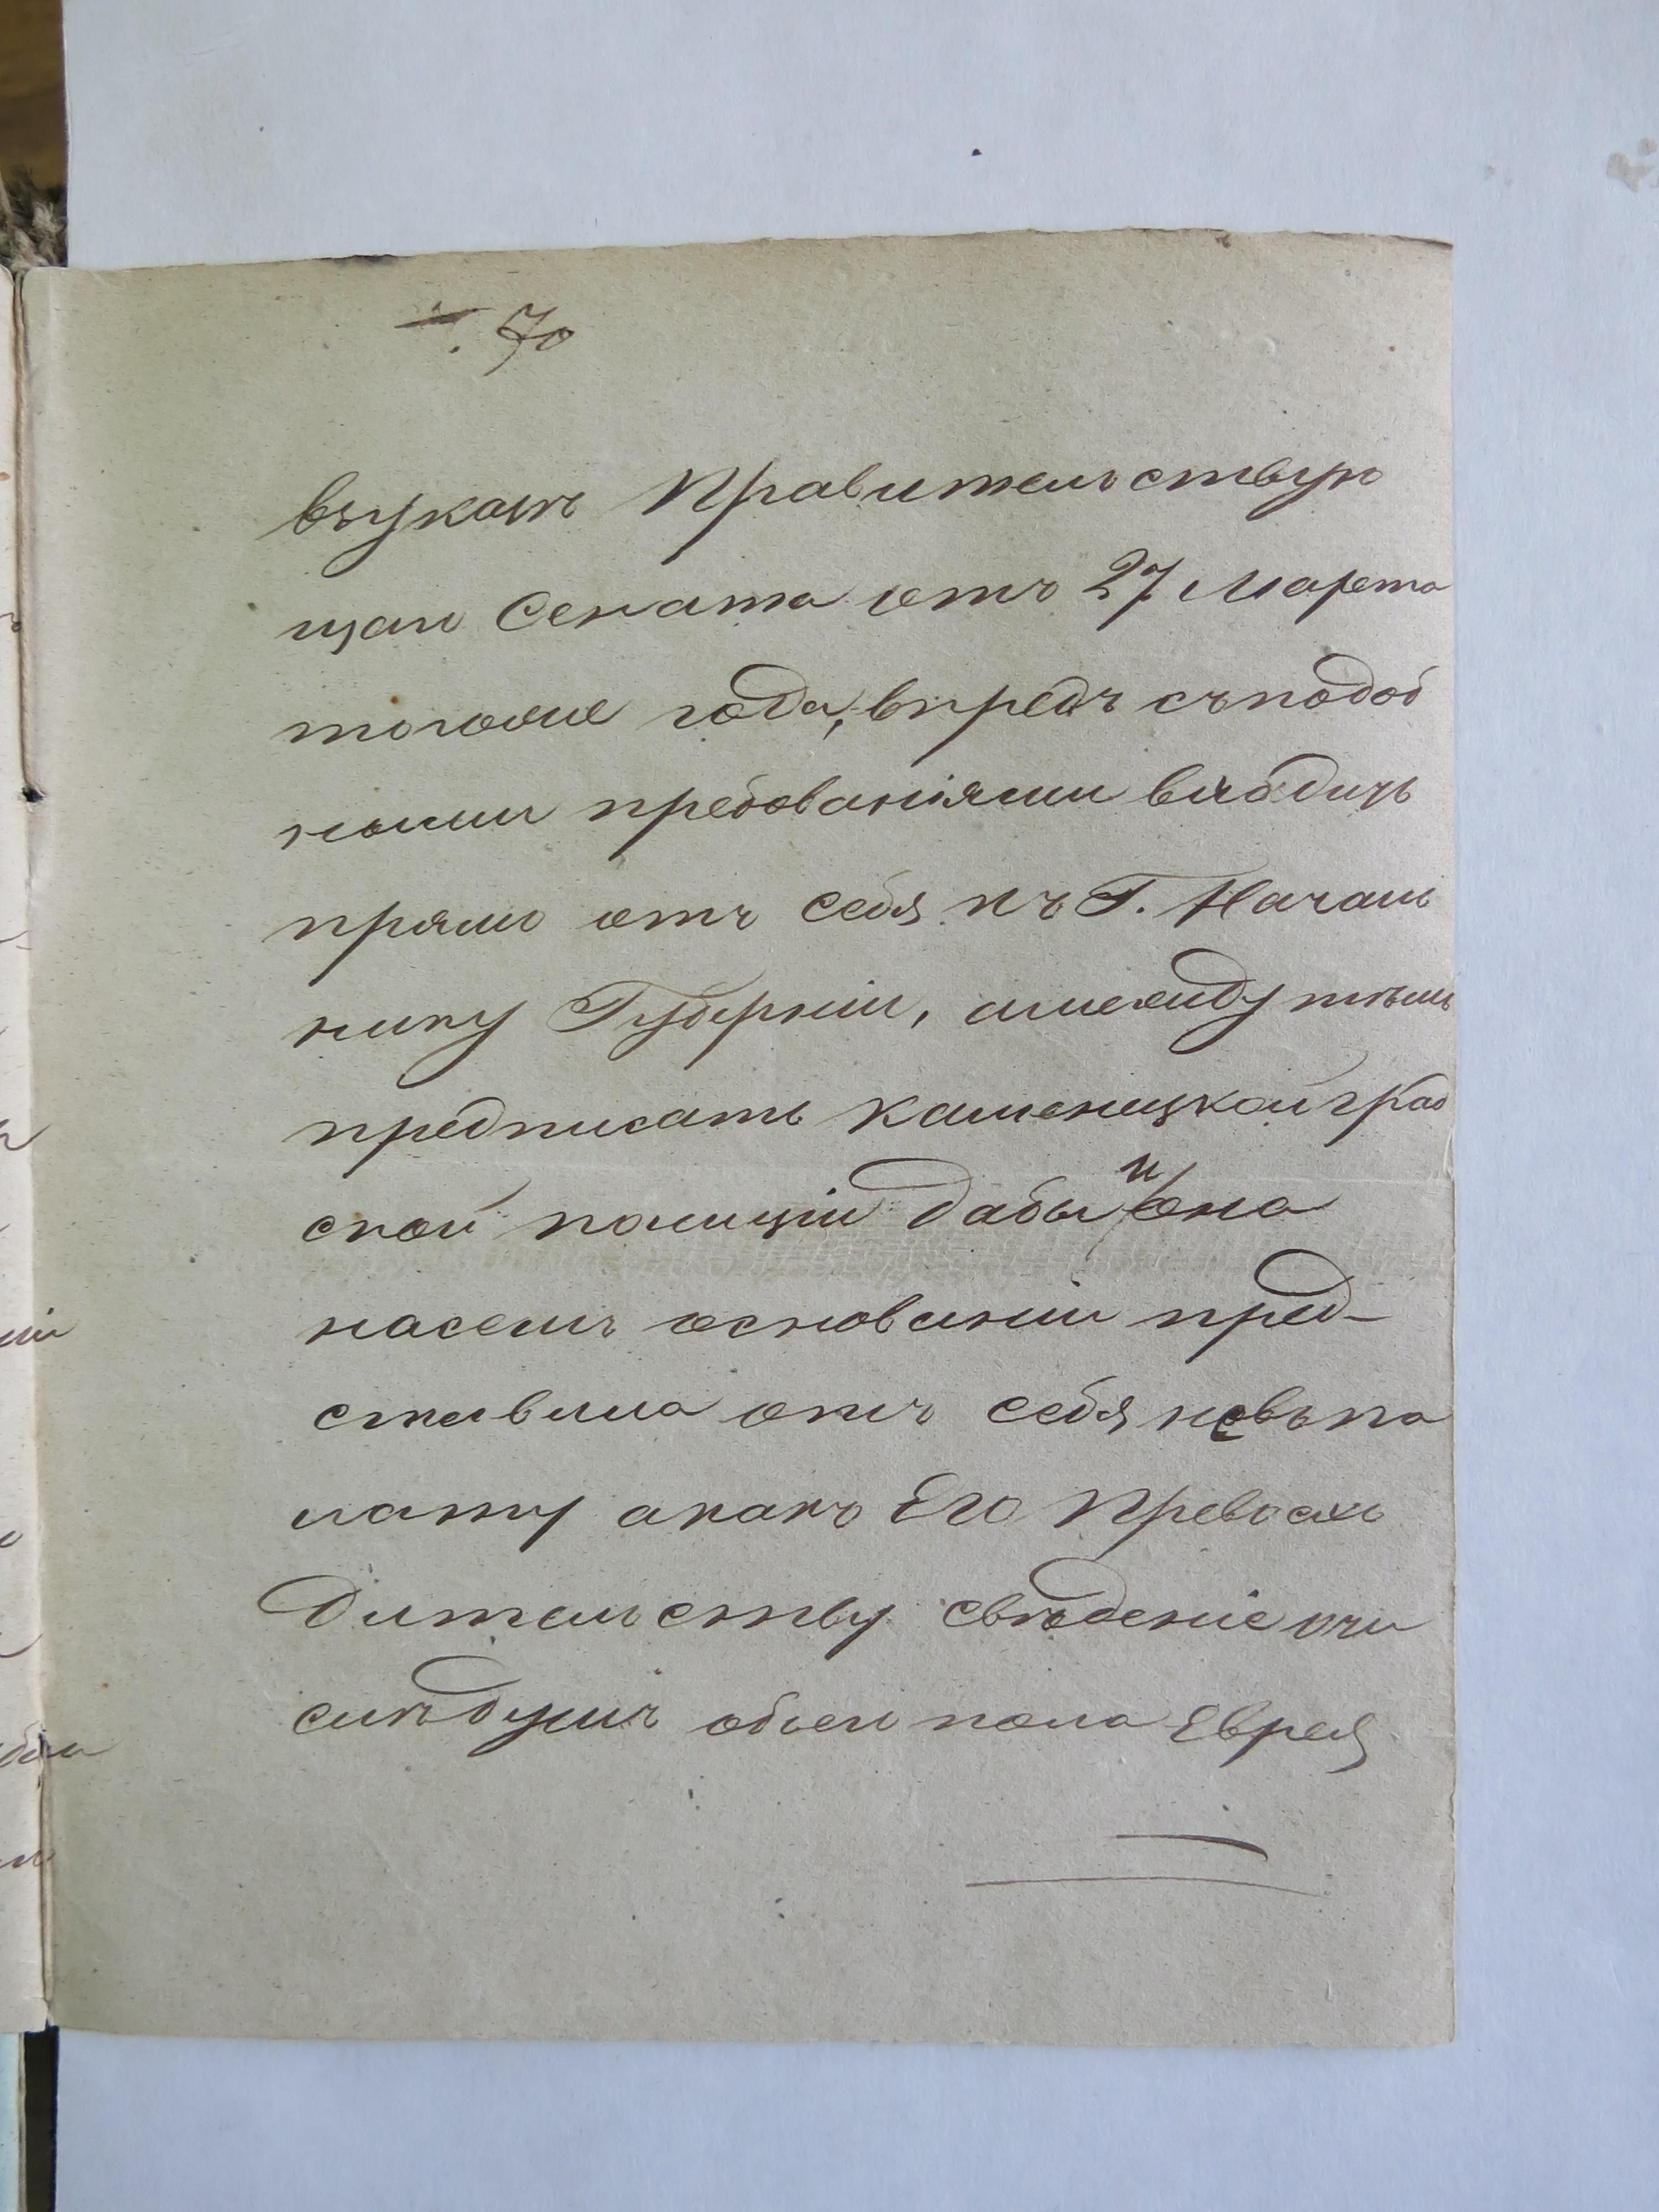 70
въуказѣ Правительствую
щаго Сената отъ 27 Марта
тогоже года, впредъ съподоб
ными требованіями входить
прямо отъ себя къ Г. Началь
нику Губерніи, амежду тѣмъ
предписать Каменецкой град
ской полиціи дабы и она
насемъ основаніи пред-
ставила отъ себя невъпа
лату акакъ Его Превосхо
дительству свѣденіе очи
слѣдушъ обоего пола Еврея